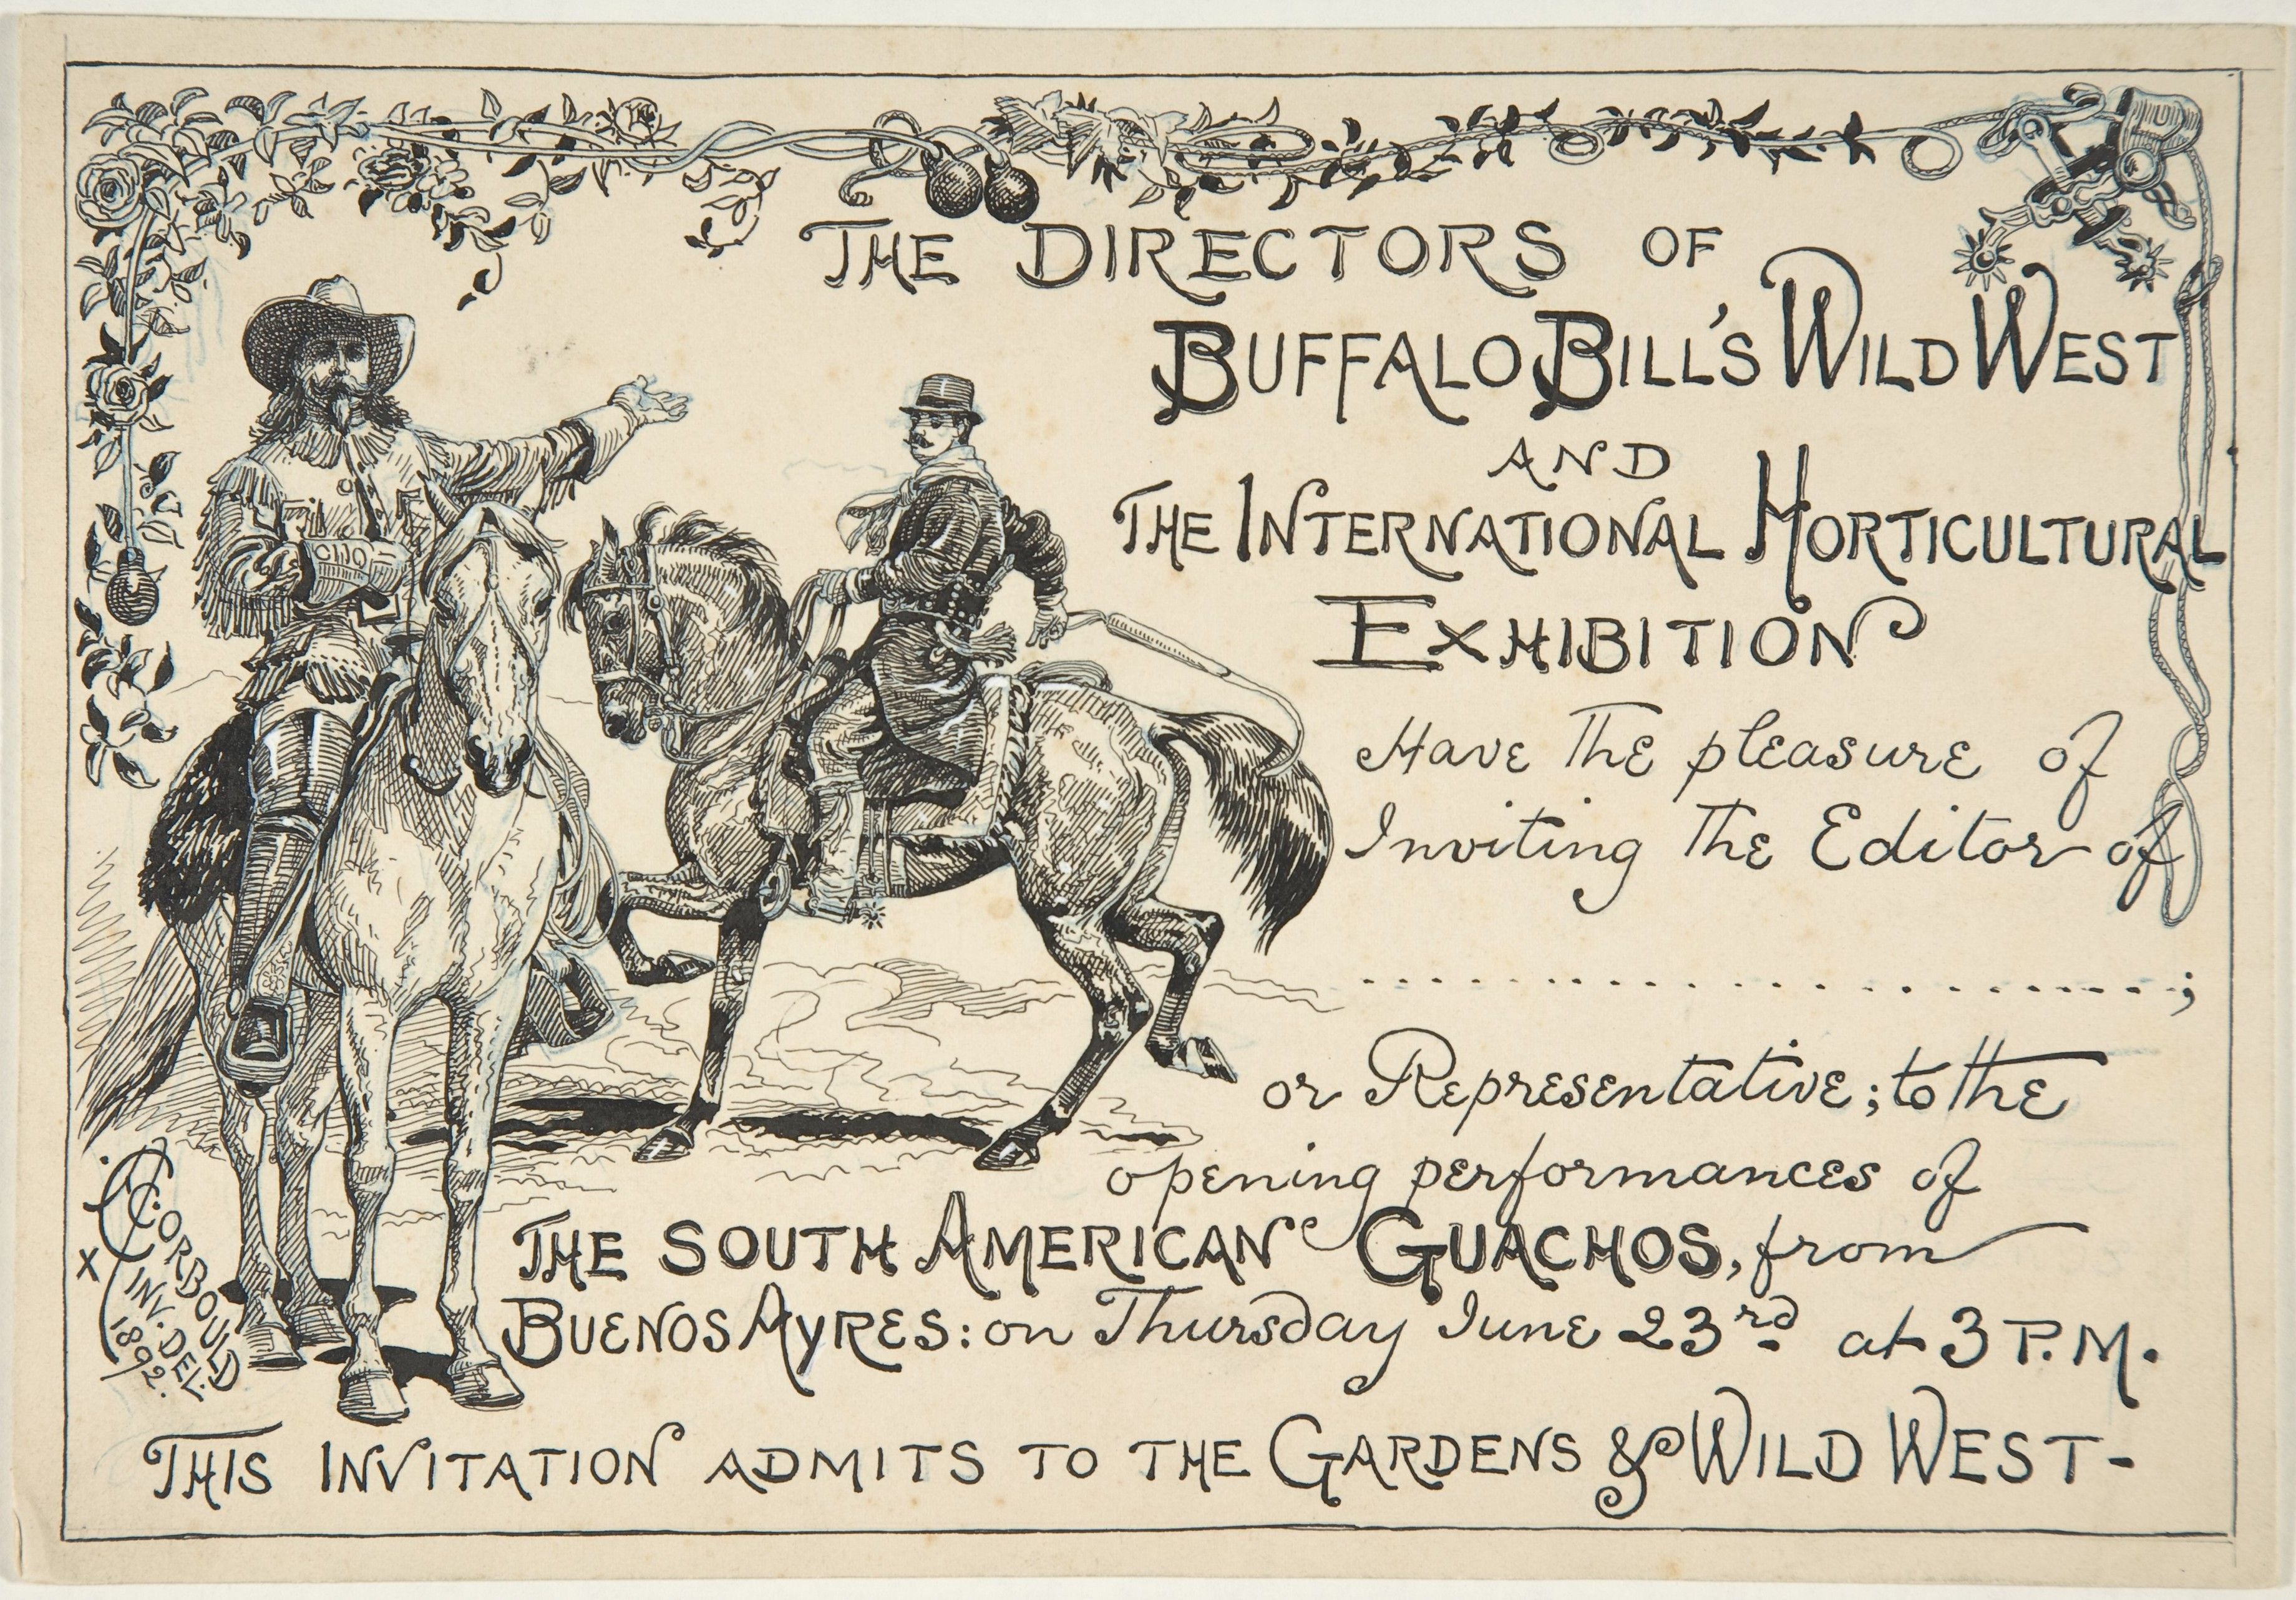 THE DIRECTORS OF
BUFFALO BILL'S WILD WEST
AND
THE INTERNATIONAL HORTICULTURAL
EXHIBITION
Have The pleasure of
Inviting The Editor of
........................;
or Representative; to the
opening performances of
THE SOUTH AMERICAN GUACHOS, from
BUENOS AYRES: on Thursday June 23rd at 3 P.M.
THIS INVITATION ADMITS TO THE GARDENS & WILD WEST-
x CORBOULD
INV. DEL.
1892.